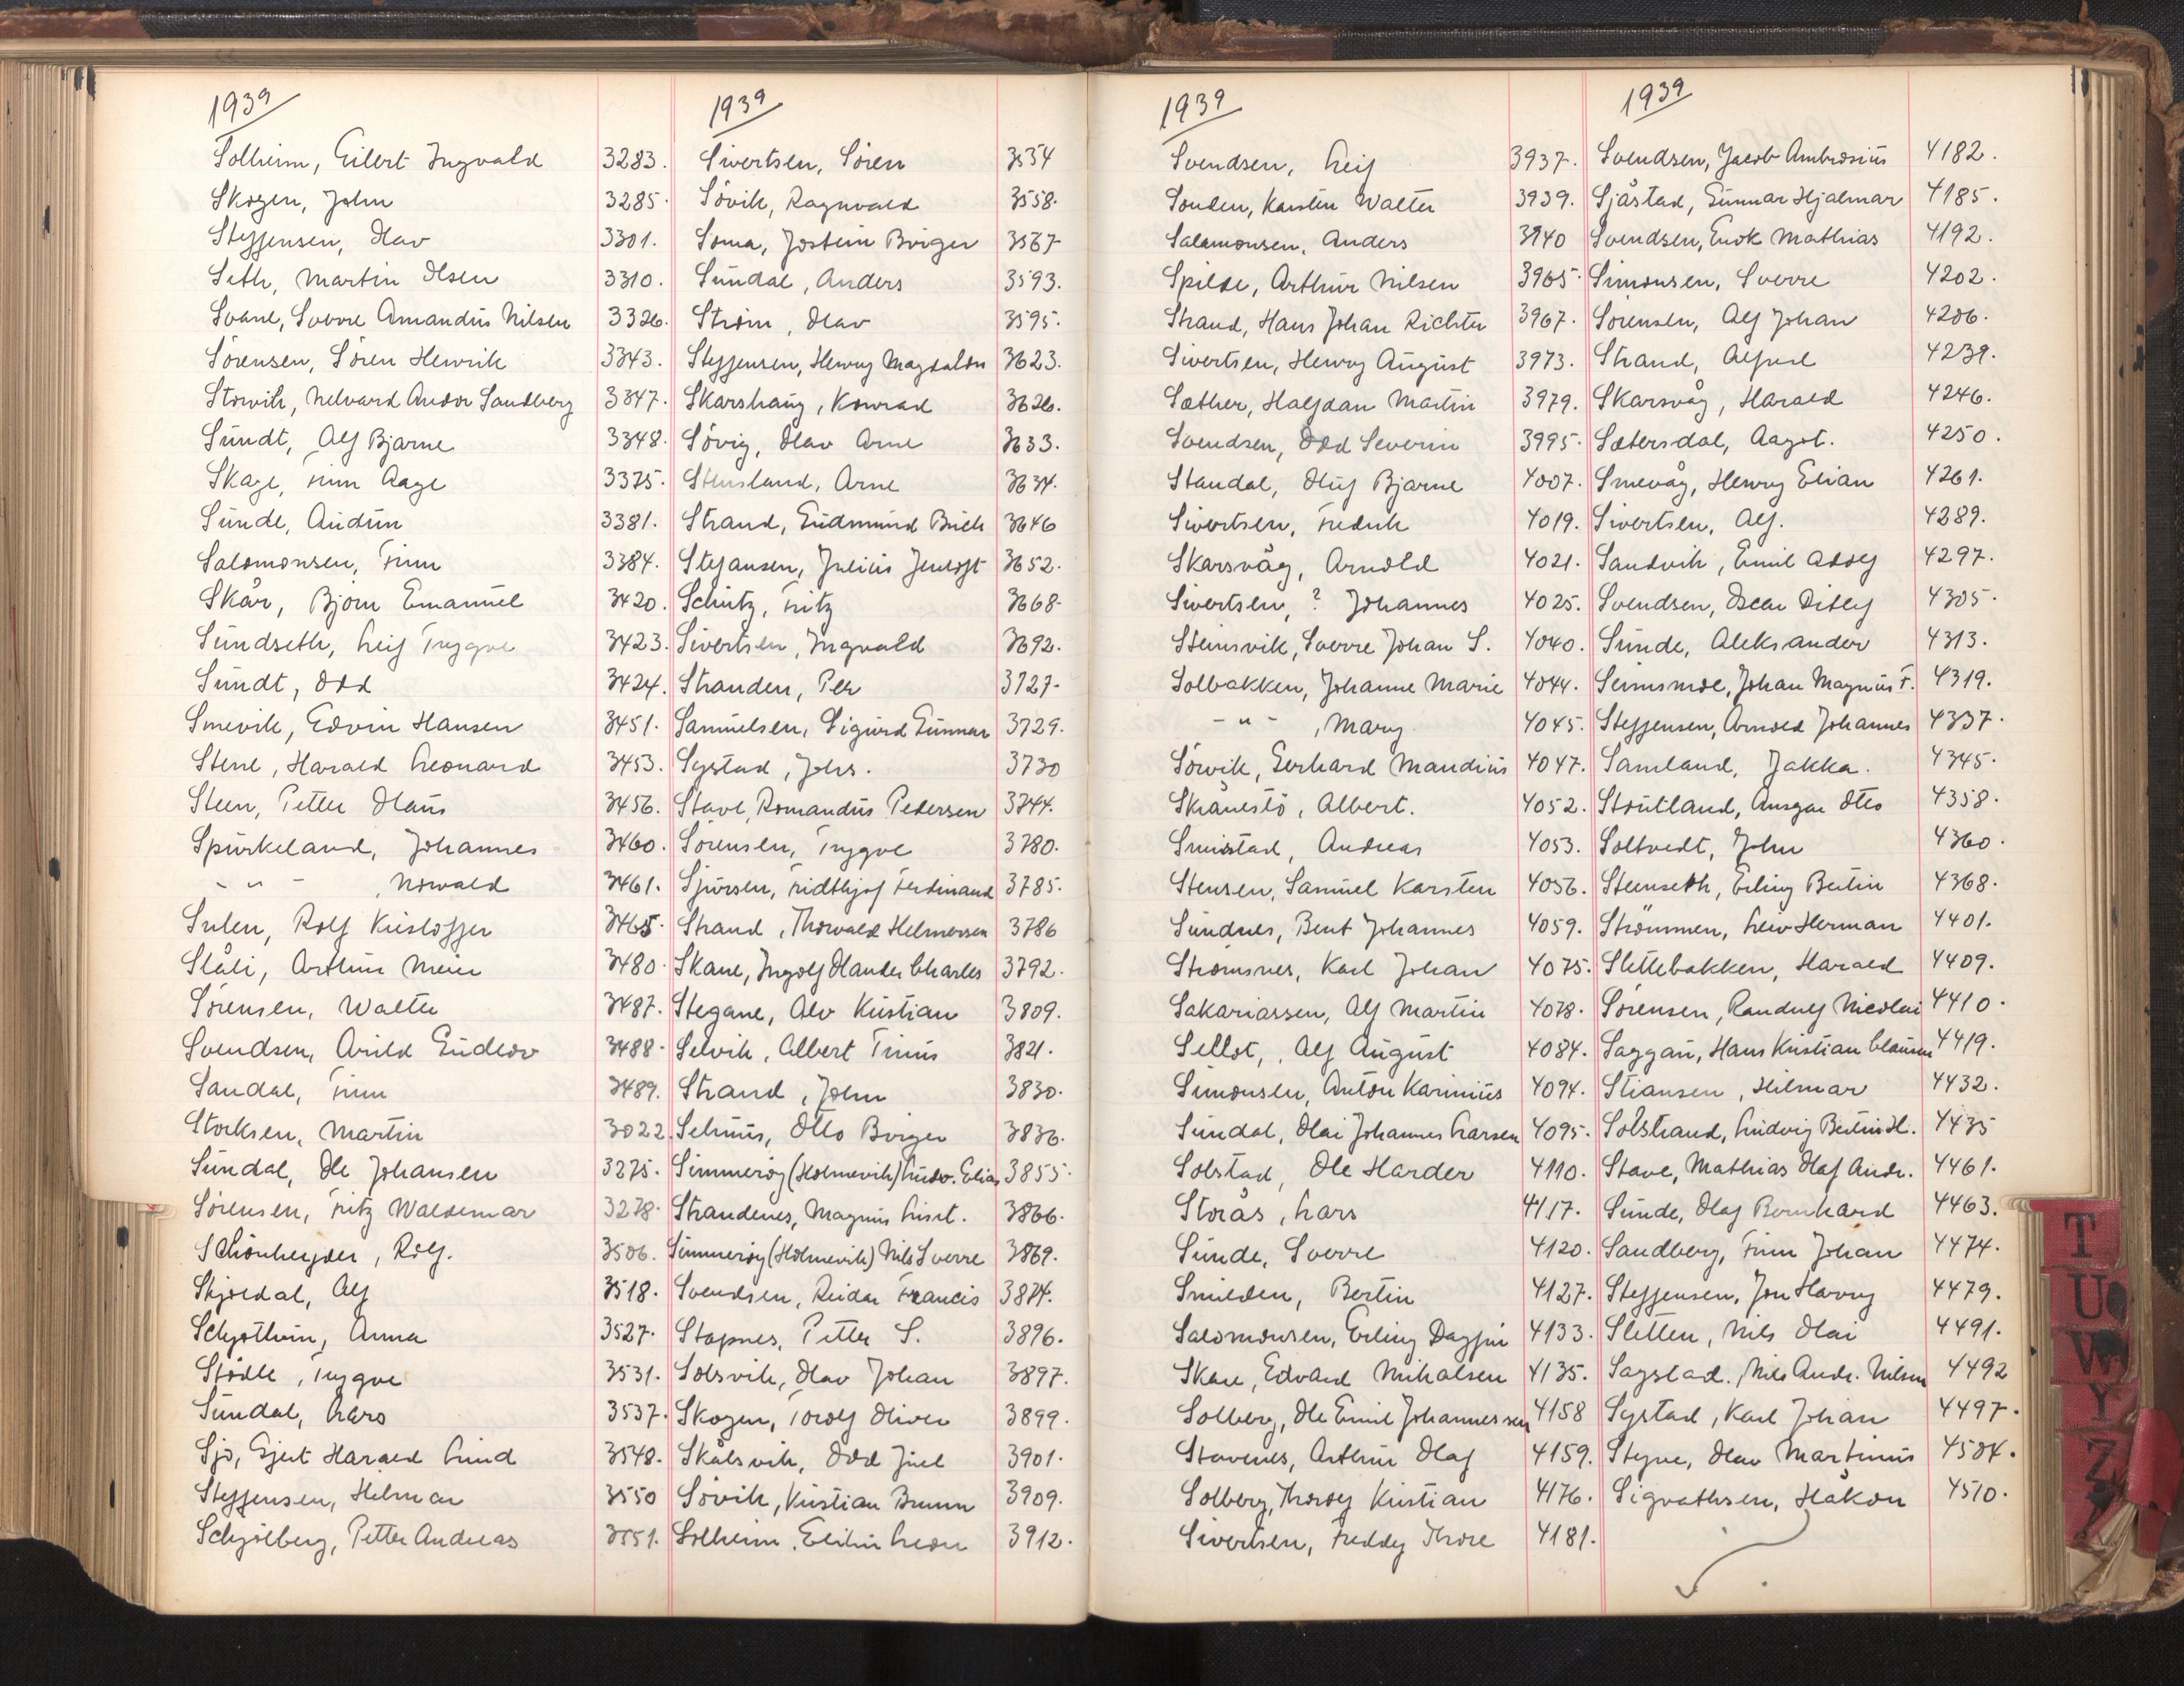 1939
Solheim, Eilert Ingvald 3283.
Skogen, John 3285.
Steffensen, Olav 3301.
Seth, Martin Olsen 3310.
Svane, Sverre Amandus Nilsen 3326.
Sörensen, Sören Henrik 3343.
Storvik, Nelvard Andor Sandberg 3347.
Sundt, Alf Bjarne 3348.
Skage, Finn Aage 3375.
Sunde, Audun 3381.
Salomonsen, Finn 3384.
Skår, Bjørn Emanuel 3420.
Sundseth, Leif Trygve 3423.
Sundt, Odd 3424.
Smevik, Edvin Hansen 3451.
Stene, Harald Leonard 3453.
Steen, Petter Olaus 3456.
Spurkeland, Johannes 3460.
- " - , Norvald 3461.
Sulen, Rolf Kristoffer 3465.
Slåli, Arthur Meier 3480.
Sörensen, Walter 3487.
Svendsen, Arild Gudlov 3488.
Sandal, Finn 3489.
Storksen, Martin 3022.
Sundal, Ole Johansen 3275.
Sörensen, Fritz Waldemar 3278.
Schönheyder, Rolf. 3506.
Skjoldal, Alf 3518.
Schjøthun, Anna 3527.
Stödle, Trygve 3531.
Sundal, Lars 3537.
Sjo, Gjert Harald Lund 3548.
Steffensen, Hilmar 3550
Schjölberg, Petter Andreas 3551.
1939
Sivertsen, Sören 3554
Sövik, Ragnvald 3558.
Soma, Jostein Birger 3567
Sundal, Anders 3593.
Ström, Olav 3595.
Steffensen, Henry Magdalon 3623.
Skarshaug, Konrad 3626.
Sövig, Olav Arne 3633.
Stensland, Arne 3634.
Strand, Gudmund Buch 3646
Stefansen, Julius Jentoft 3652.
Schutz, Fritz 3668.
Sivertsen, Ingvald 3692.
Stranden, Per 3727.
Samuelsen, Sigurd Gunnar 3729.
Systad, Johs. 3730
Stave, Romandus Pedersen 3744.
Sörensen, Trygve 3780.
Sjursen, Fridthjof Ferdinand 3785.
Strand, Thorvald Helmersen 3786
Skane, Ingolf Olander Charles 3792.
Stegane, Alv Kristian 3809.
Selvik, Albert Trius 3821.
Strand, John 3830.
Selnus, Otto Birger 3836.
Simmeröy (Holmevik) Ludv. Elias 3855.
Strandenes, Magnus Krist. 3866.
Simmeröy (Holmevik) Nils Sverre 3869.
Svendsen, Reidar Francis 3874.
Stapnes, Petter S. 3896.
Solsvik, Olav Johan 3897.
Skogen, Torolf Oliver 3899.
Skålsvik, Odd Juel 3901.
Sövik, Kristian Brunn 3909.
Solheim, Edvin Leon 3912.
1939
Svendsen, Leif 3937.
Sonden, Karsten Walter 3939.
Salamonsen, Anders 3940
Spilde, Arthur Nilsen 3965.
Strand, Hans Johan Richter 3967.
Sivertsen, Henry August 3973.
Sæther, Halfdan Martin 3979.
Svendsen, Odd Severin 3995.
Standal, Oluf Bjarne 4007.
Sivertsen, Fredrik 4019.
Skarsvåg, Arnold 4021.
Sivertsen, ? Johannes 4025.
Steinsvik, Sverre Johan S. 4040.
Solbakken, Johanne Marie 4044.
- " - , Mary 4045.
Sörvik, Gerhard Mandius 4047.
Skånestö, Albert. 4052.
Smistad, Andreas 4053.
Stensen, Samuel Karsten 4056.
Sundnes, Bent Johannes 4059.
Strömsnes, Karl Johan 4075.
Sakariassen, Alf Martin 4078.
Sellot, Alf August 4084.
Simonsen, Anton Karinius 4094.
Sundal, Olai Johannes Larsen 4095.
Solstad, Ole Harder 4110.
Storås, Lars 4117.
Sunde, Sverre 4120.
Smilden, Bertin 4127.
Salomonsen, Erling Dagfin 4133.
Skare, Edvard Mikalsen 4135.
Solberg, Ole Emil Johannessen 4158
Stavenes, Arthur Olaf 4159.
Solberg, Thorolf Kristian 4176.
Sivertsen, Freddy Thore 4181.
1939
Svendsen, Jacob Ambrosius 4182.
Sjåstad, Gunnar Hjalmar 4185.
Svendsen, Enok Mathias 4192.
Simonsen, Sverre 4202.
Sörensen, Alf Johan 4206.
Strand, Alfred 4239.
Skarsvåg, Harald 4246.
Sætersdal, Aagot. 4250.
Smevåg, Henry Elian 4261.
Sivertsen, Alf. 4289.
Sandvik, Emil Adolf 4297.
Svendsen, Oscar Ditlef 4305.
Sunde, Aleksander 4313.
Seinsmoe, Johan Magnus F. 4319.
Steffensen, Arnold Johannes 4337.
Samland, Jakka. 4345.
Stoutland, Ansgar Otto 4358.
Soltvedt, John 4360.
Steenseth, Erling Bertin 4368.
Strömmen, Leiv Herman 4401.
Slettebakken, Harald 4409.
Sörensen, Randulf Nicolai 4410.
Saggau, Hans Kristian Clausen 4419.
Stiansen, Hilmar 4432.
Solstrand, Ludvig Bertin H. 4435
Stave, Mathias Olaf Andr. 4461.
Sunde, Olaf Bernhard 4463.
Sandberg, Finn Johan 4474.
Steffensen, Jon Harry 4479.
Sletten, Nils Olai 4491.
Sagstad. Nils Andr. Nilsen 4492
Systad, Karl Johan 4497.
Styve, Olav Martinus 4504.
Sigvathsen, Håkon 4510.
T
U
W
Y
Z